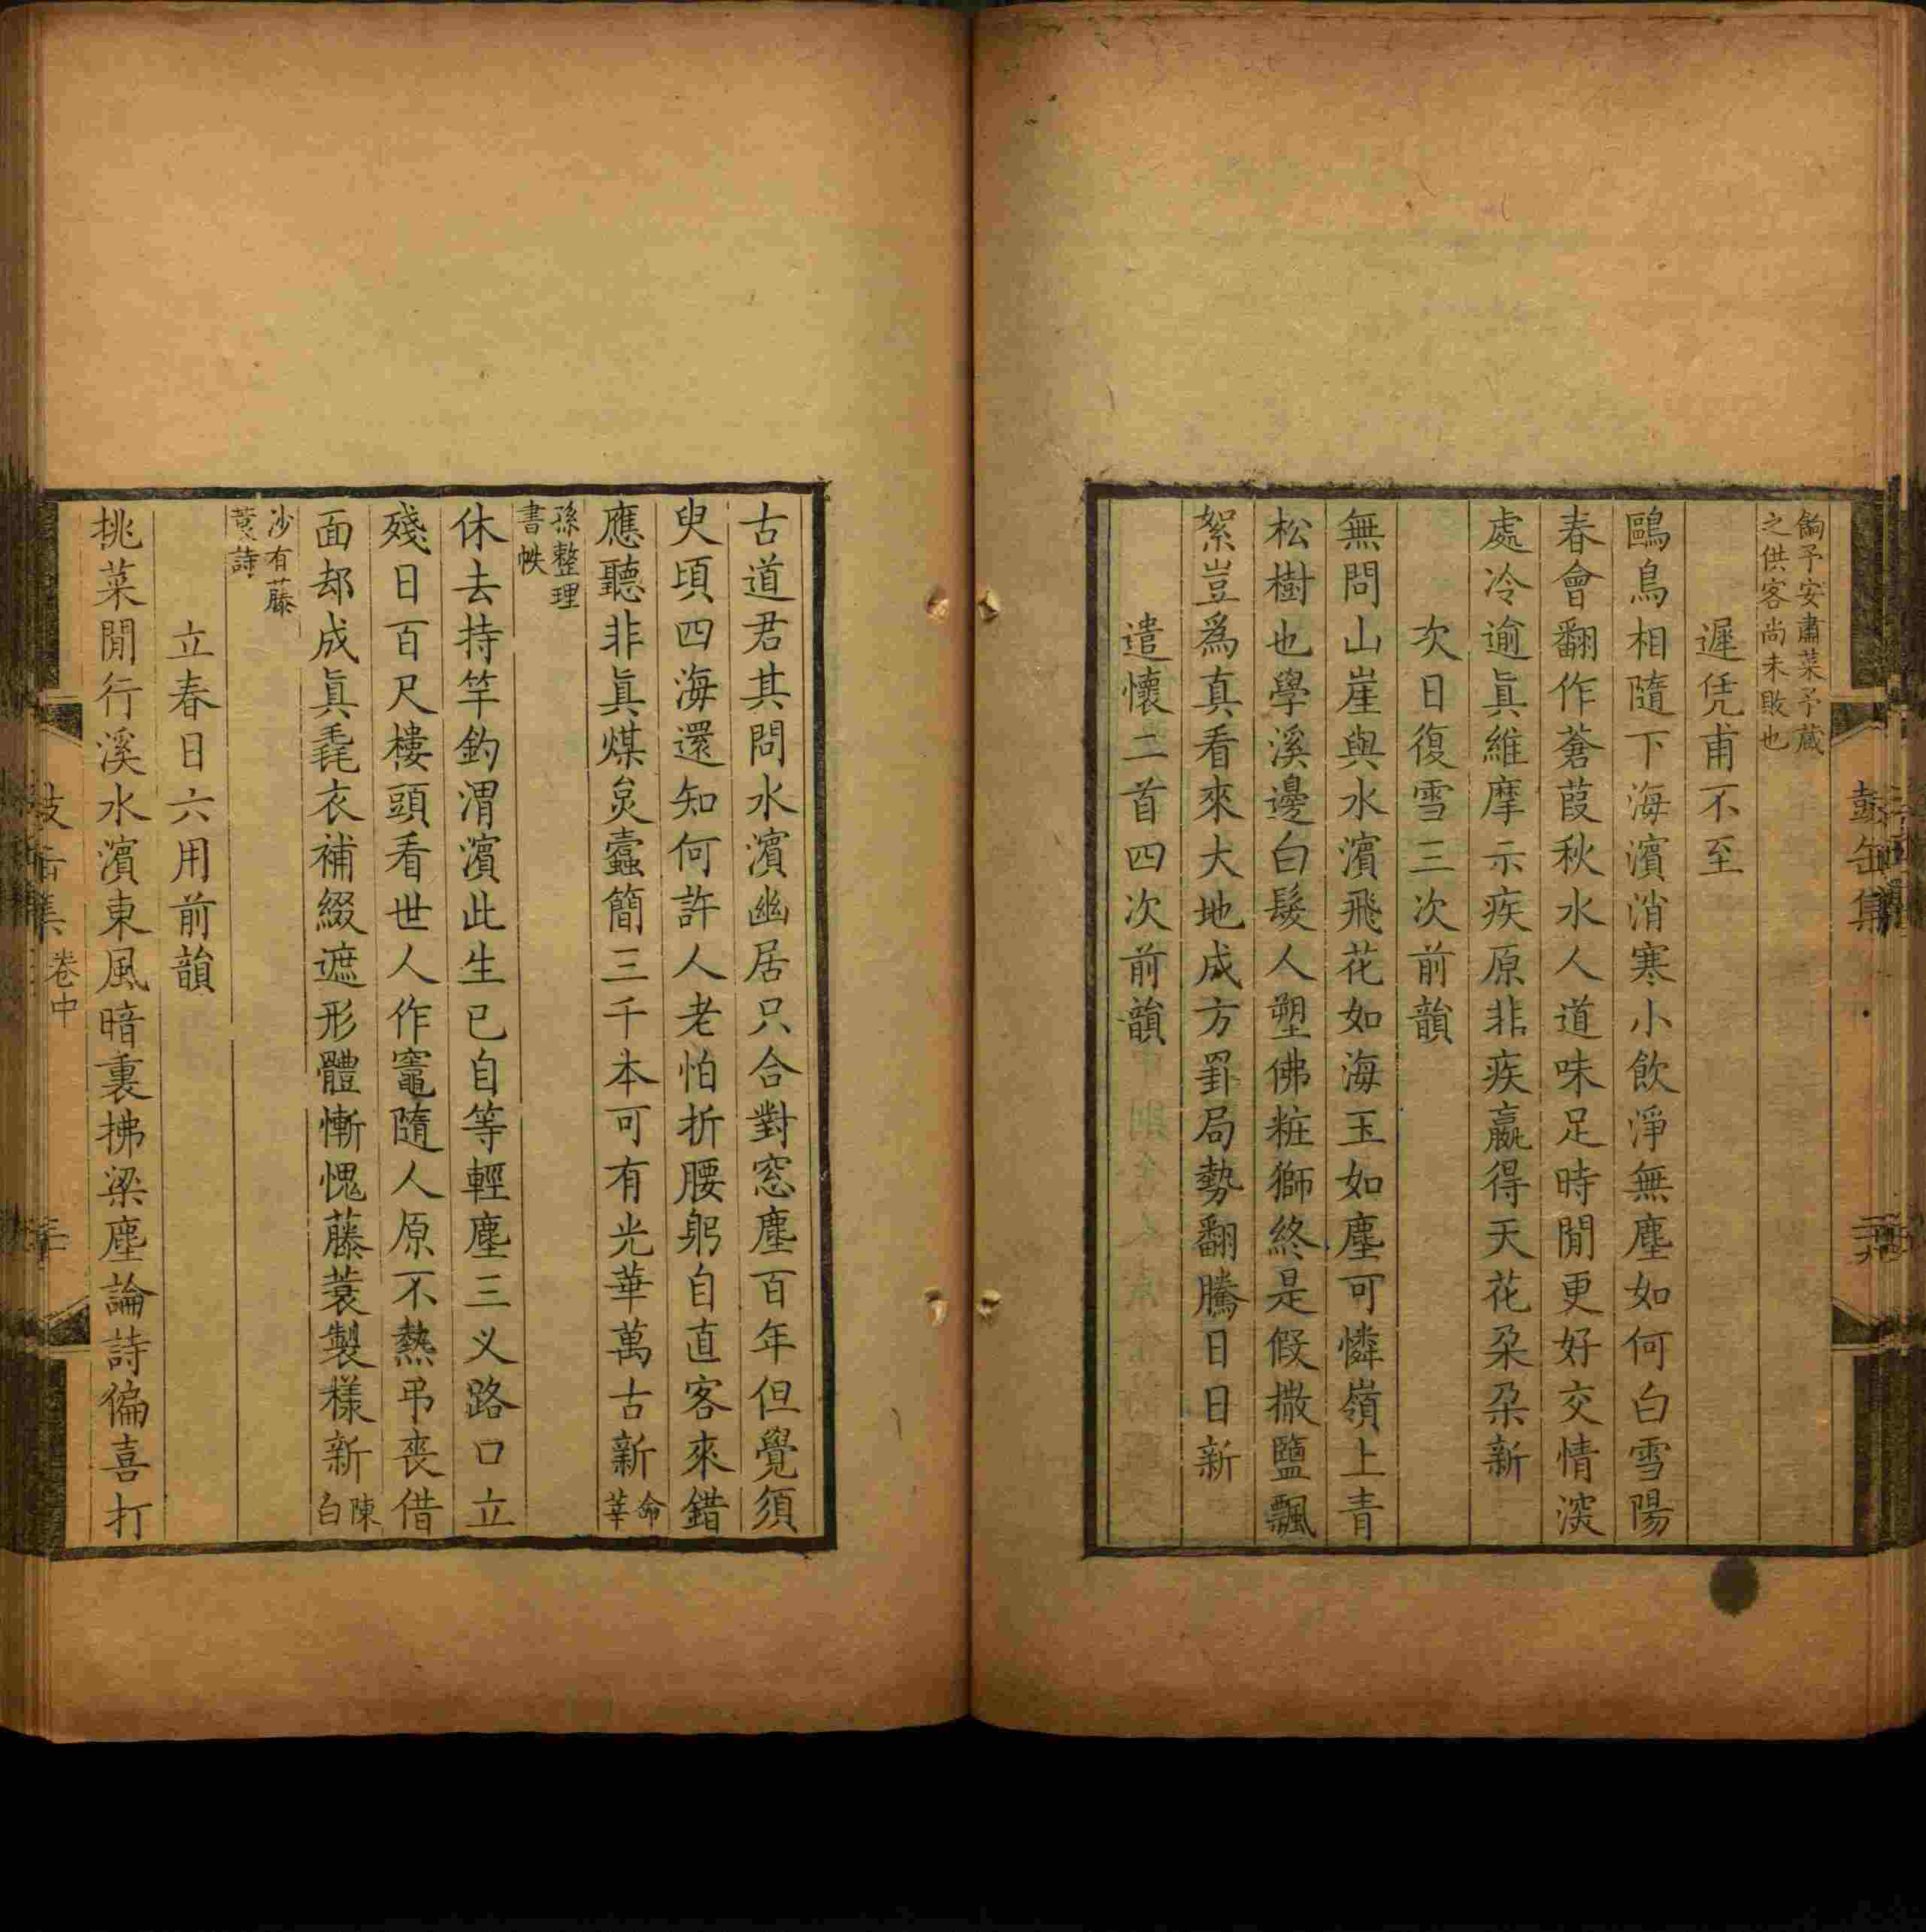 餉予安肅菜予蔵
之供客尚未敗也
遲凭甫不至
鷗鳥相隨下海濱消寒小飲淨無塵如何白雪陽
春會翻作蒼葭秋水人道味足時閒更好交情深
處冷逾眞維摩示疾原非疾贏得天花朵朵新
次日復雪三次前韻
無問山崖與水濱飛花如海玉如塵可憐嶺上青
松樹也學溪邊白髮人塑佛粧獅終是假撒鹽飄
絮豈爲真看來大地成方罫局勢翻騰日日新
遣懷二首四次前韻
古道君其問水濱幽居只合對窓塵百年但覺須
臾頃四海還知何許人老怕折腰躬自直客來錯
應聽非眞煤炱蠹簡三千本可有光華萬古新命莘
孫整理
書帙
休去持竿釣渭濱此生已自等輕塵三义路口立
殘日百尺樓頭看世人作竈隨人原不熱弔喪借
面却成眞毳衣補綴遮形體慚愧藤蓑製樣新陳白
沙有藤
蓑詩
立春日六用前韻
桃菜閒行溪水濱東風暗裏拂梁塵論詩偏喜打
卷中